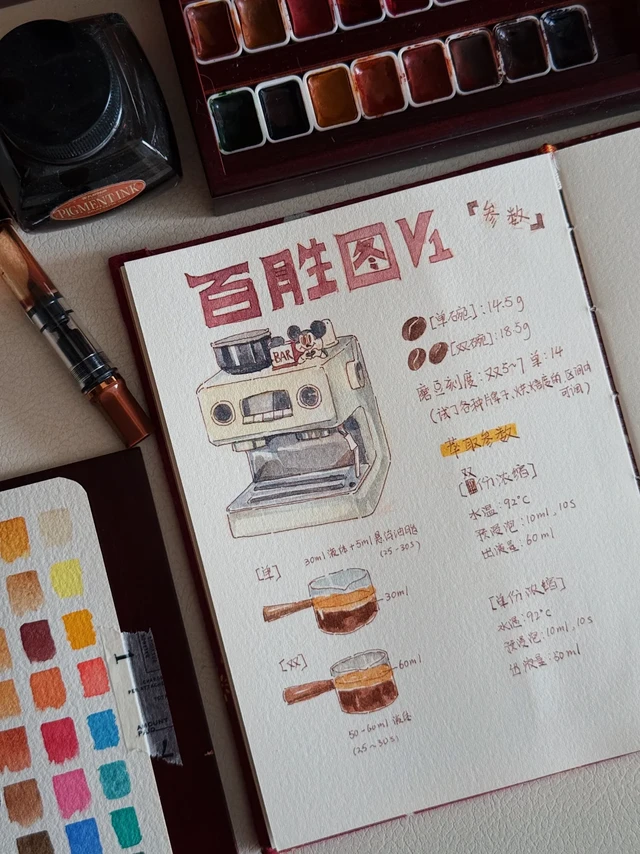 PIGMENT INK
百胜图V1
『参数』
BAR
[单碗]：14.5g
[双碗]：18.5g
磨豆刻度：双5~7 单：14
(试了各种牌子，烘焙度的区间内
可调)
萃取参数
双
[份浓缩]
水温：92℃
预浸泡：10ml，10s
出液量：60ml
[单份浓缩]
水温：92℃
预浸泡：10ml，10s
出液量：60ml
30ml 液体+5ml 悬浮油脂
(25-30s)
[单]
30ml
[双]
60ml
50-60ml 液体
(25~30s)